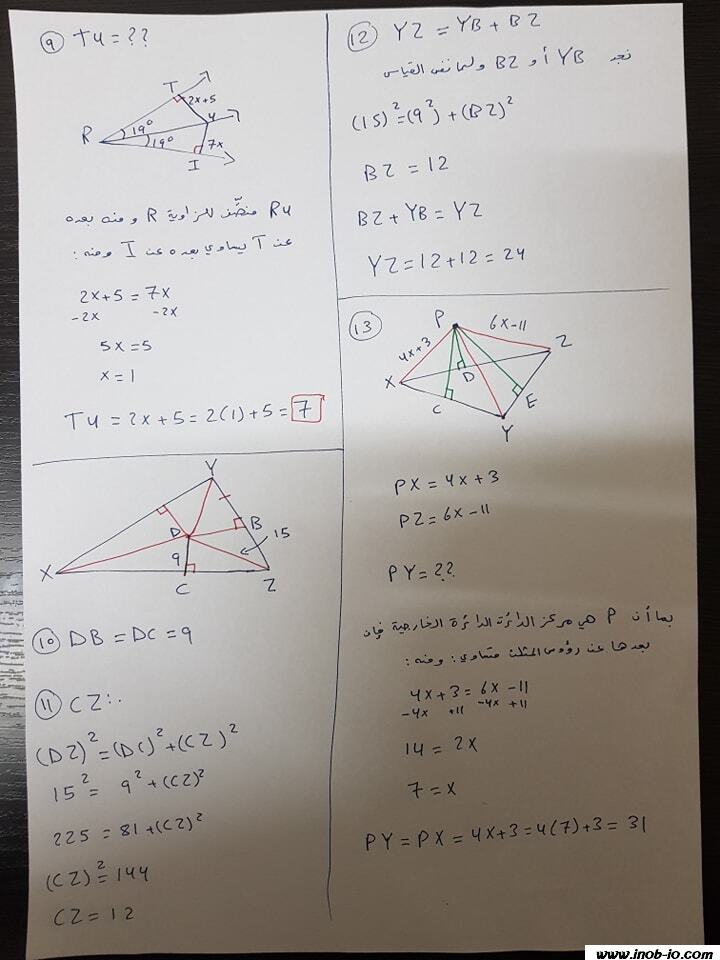 9 Tu = ??
T
2x+5
u
R
19°
19°
7x
I
Ru منصِّف للزاوية R ومنه بعده
عن T يساوي بعده عن I ومنه :
2x+5 = 7x
-2x -2x
5x = 5
x = 1
Tu = 2x+5 = 2(1)+5 = 7
Y
D
B
15
9
X
C
Z
10 DB = DC = 9
11 CZ :.
(DZ)² = (DC)² + (CZ)²
15² = 9² + (CZ)²
225 = 81 + (CZ)²
(CZ)² = 144
CZ = 12
12 YZ = YB + BZ
نجد YB أو BZ ولهما نفس القياس
(15)² = (9²) + (BZ)²
BZ = 12
BZ + YB = YZ
YZ = 12 + 12 = 24
13
P
6x-11
4x+3
Z
D
X
C
E
Y
PX = 4x+3
PZ = 6x-11
PY = ??
بما أن P هي مركز الدائرة الدائرة الخارجية فإن
بعدها عن رؤوس المثلث متساوي : ومنه :
4x+3 = 6x-11
-4x +11 -4x +11
14 = 2x
7 = x
PY = PX = 4x+3 = 4(7)+3 = 31
www.inob-io.com